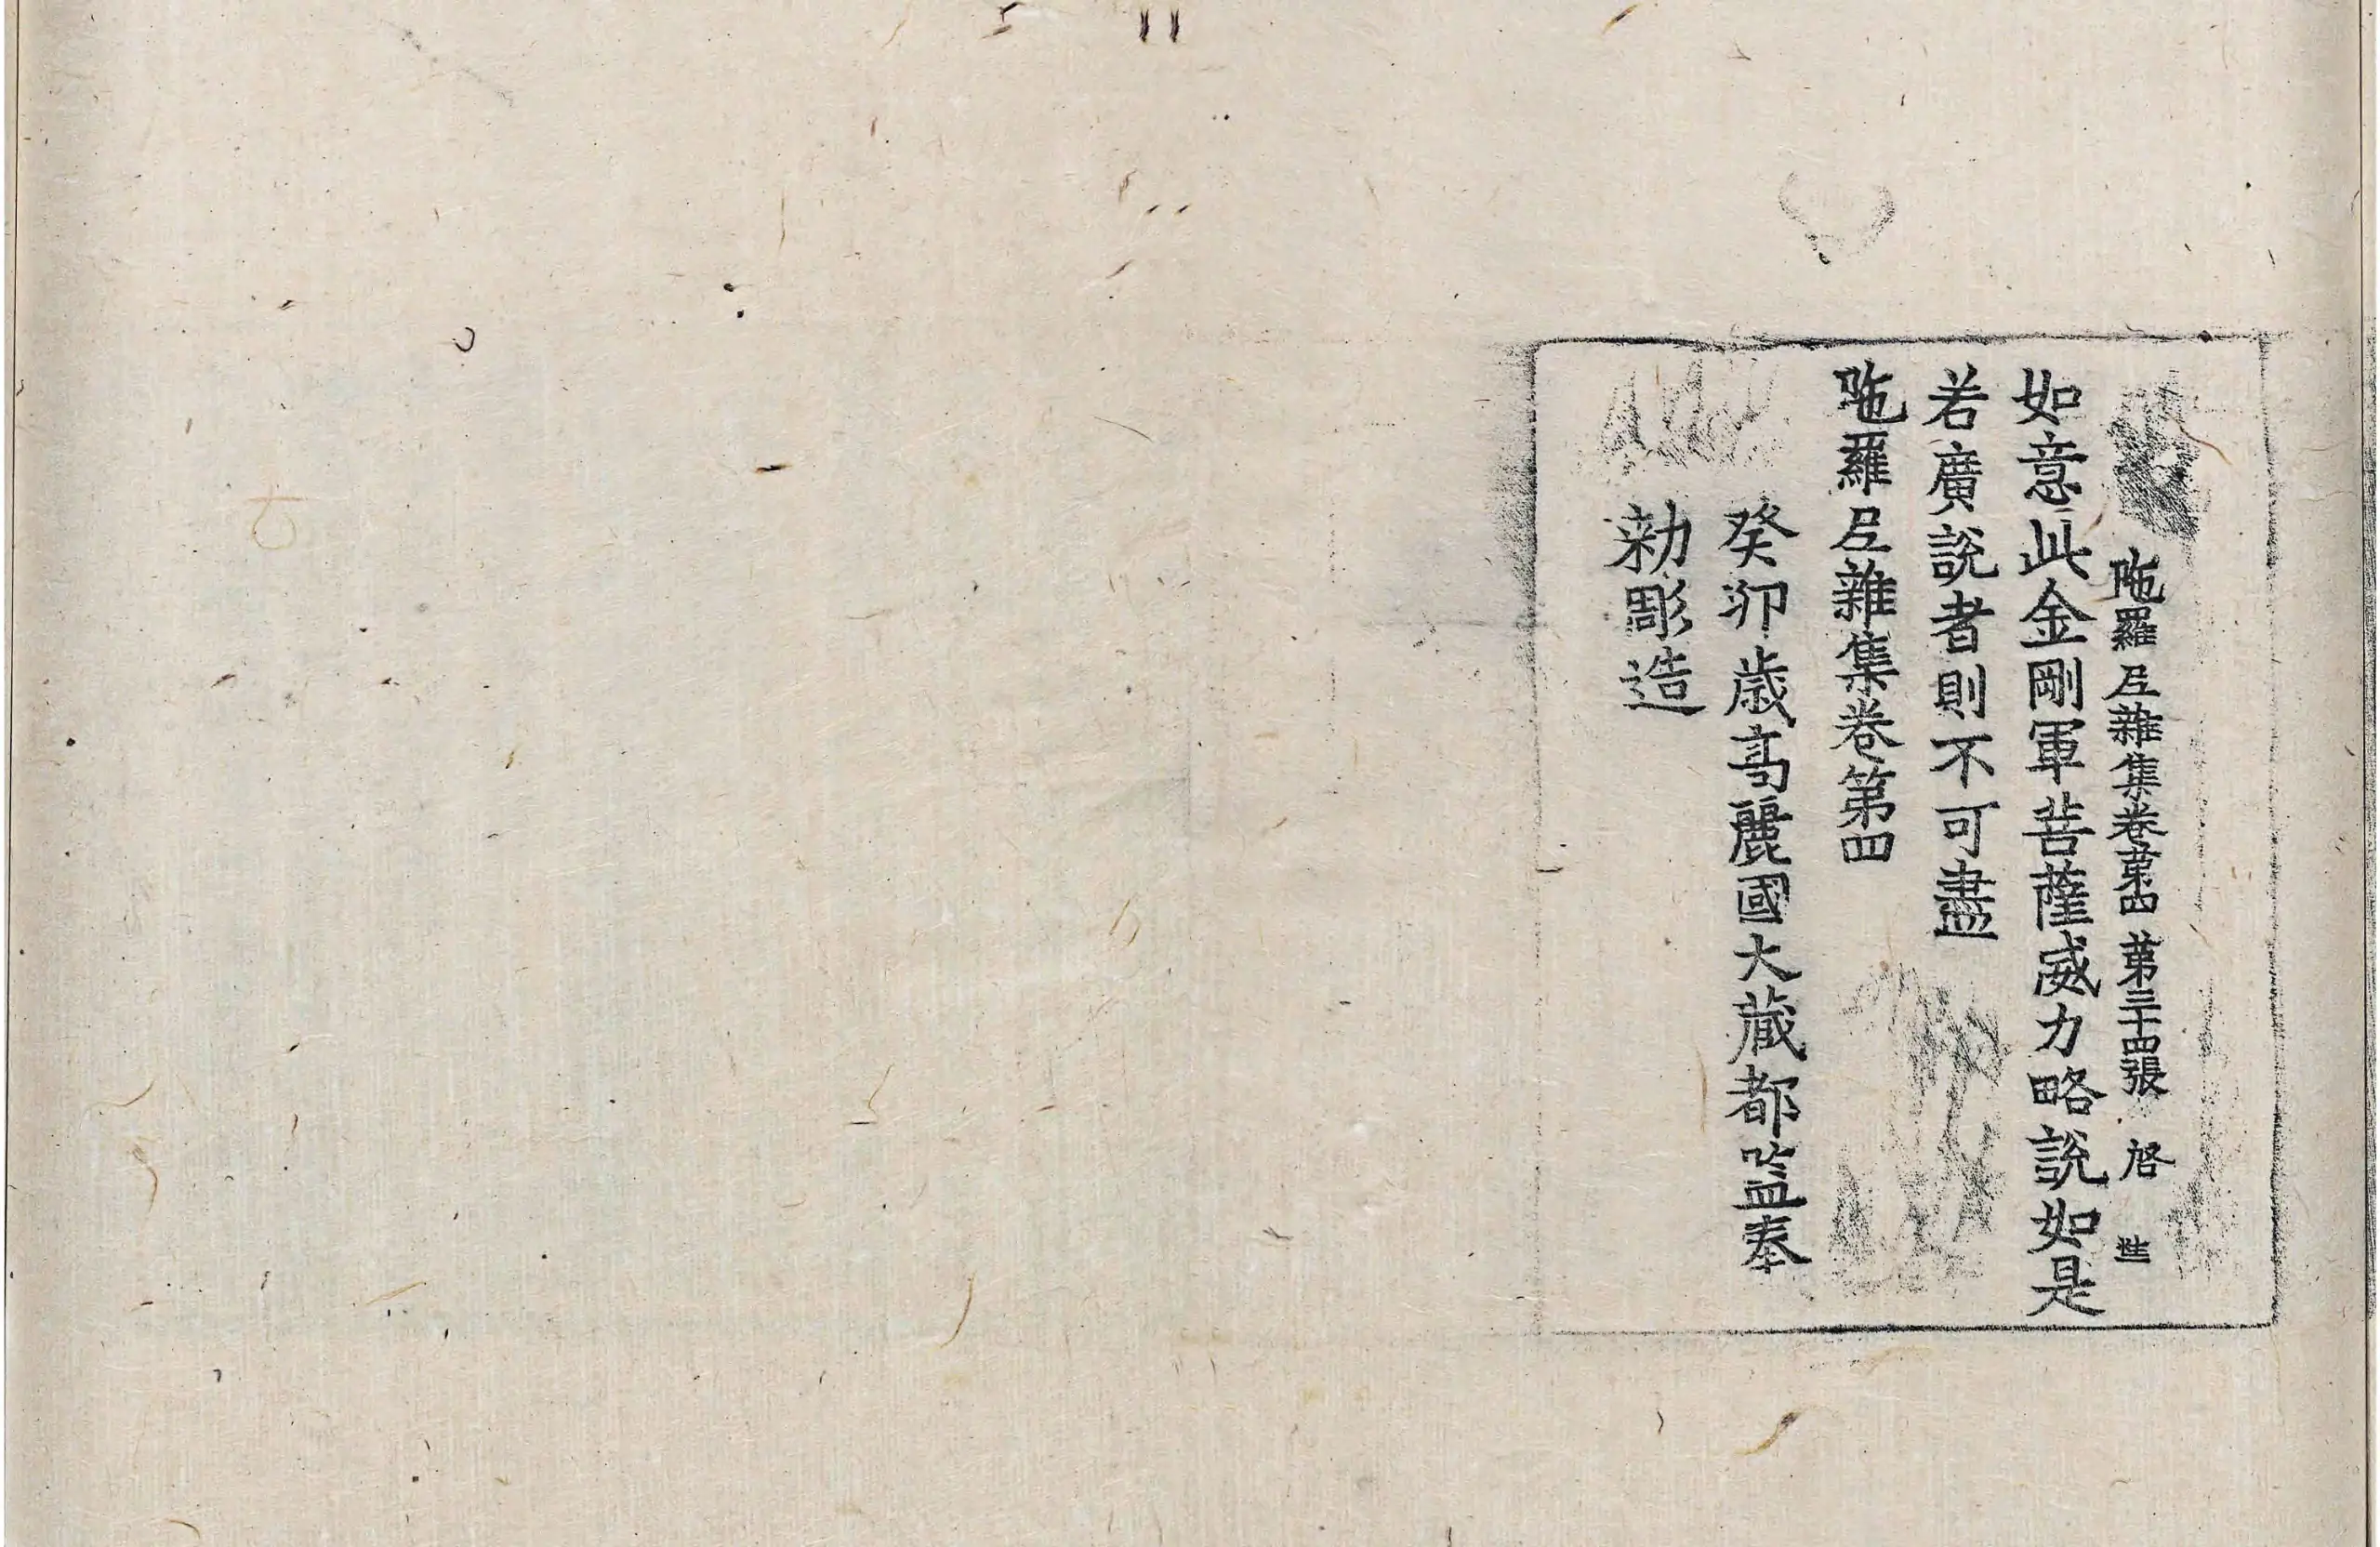 陁羅尼雜集卷苐四 苐三十四張 啓
如意此金剛軍菩薩威力略說如是
若廣說者則不可盡
陁羅尼雜集卷第四
癸卯歲高麗國大藏都監奉
勅彫造